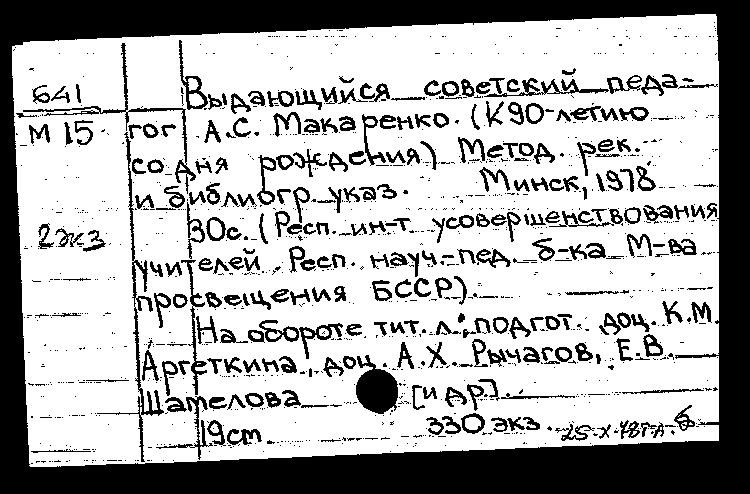 641
Выдающийся советский педа-
М 15 гог А.С. Макаренко. (К 90-летию
со дня рождения) Метод. рек.
и библиогр. указ. Минск, 1978
2экз 30с. (Респ. ин-т усовершенствования
учителей. Респ. науч.-пед. б-ка М-ва
просвещения БССР).
На обороте тит. л.: подгот. доц. К.М.
Аргеткина, доц. А.Х. Рычагов, Е.В.
Шателова [и др].
19cm. 330 экз.